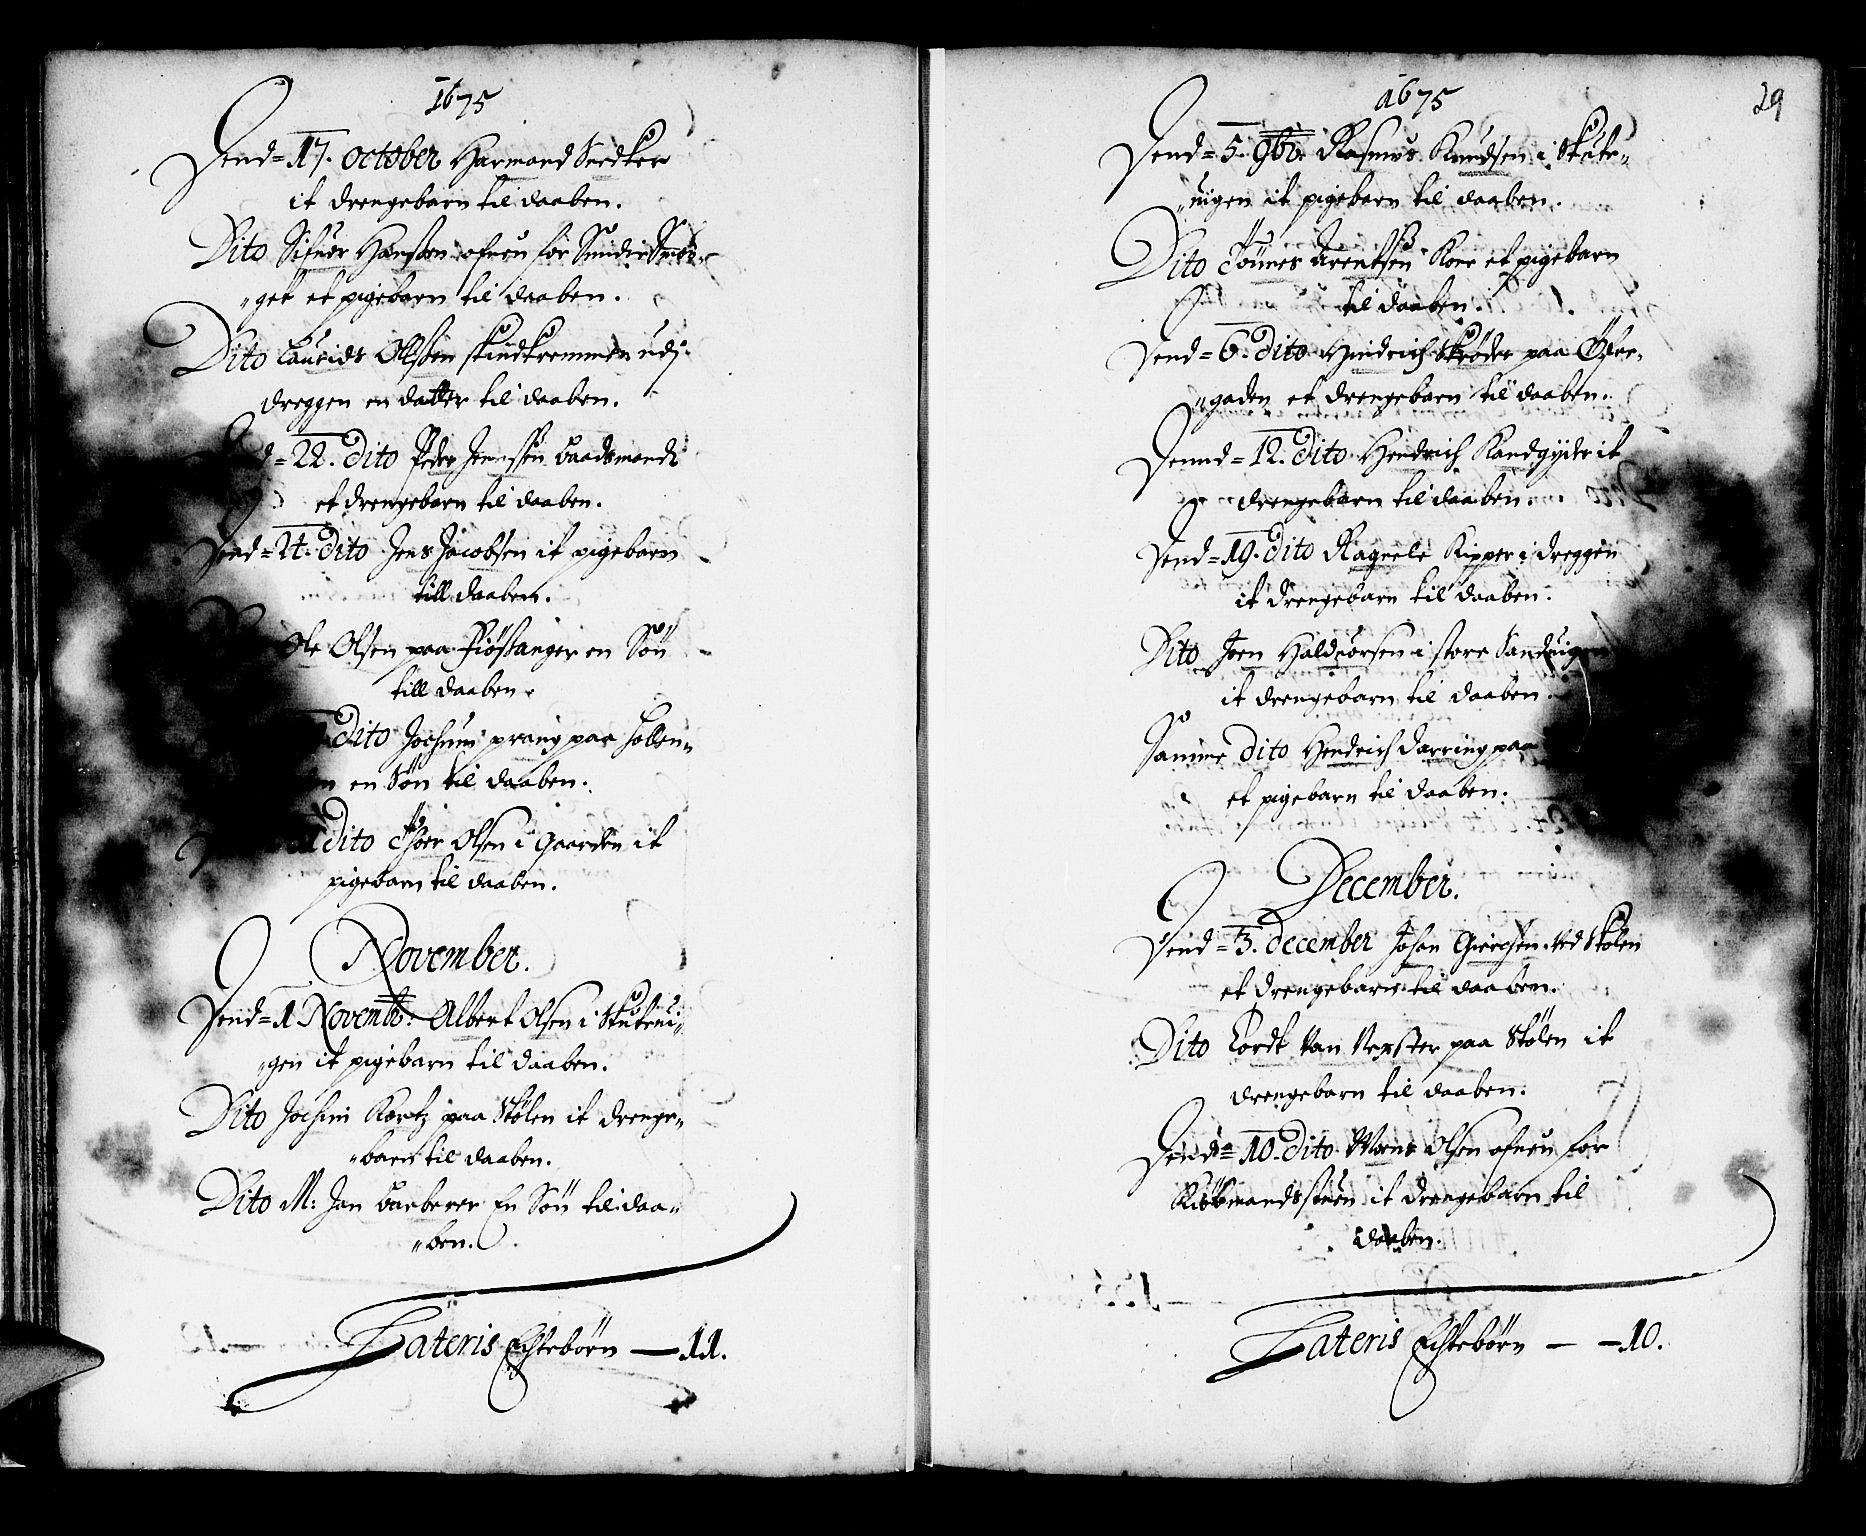 1675
Dend= 17. october Harmand Seedker
it drengebarn til daaben.
Dito Sifuer Hansen ofuen for Smedie Smør„
„get et pigebarn til daaben.
Dito Laurids Ollsen skindkremmer udj
dreggen en datter til daaben.
d= 22. dito Peder Jennsen baadsmand
et drengebarn til daaben.
Dend= 24. dito Jens Jacobsen it pigebarn
till daaben.
Ole Olsen paa Fiøssanger en Søn
till daaben.
dito Jochum prang paa Holen„
en Søn til daaben.
dito Thoer Olsen i Gaarden it
pigebarn til daaben.
November.
Dend= 1 Novemb: Albert Olsen i Skuteui„
„gen it pigebarn til daaben.
Dito Jochim Kortz paa Stølen it drenge„
„barn til daaben.
Dito M: Jan barberer En Søn til daa„
„ben.
Lateris Echtebørn — 11.
1675
29
Dend= 5. 9br. Rasmus Knudsen i Skute„
„uigen it pigebarn til daaben.
Dito Tønnes Arentsen Kone et pigebarn
til daaben.
Dend= 6. dito Hindrich Skrøder paa Øfre„
„gaden et drengebarn til daaben.
Dennd= 12. dito Hendrich Kandgyder it
drengebarn til daaben.
Dend= 19. dito Ragnele Kipper i dreggen
it drengebarn til daaben.
Dito Joen Haldvorsen i store Sanduigen
it drengebarn til daaben.
Samme dito Hendrich Darring paa
et pigebarn til daaben.
December.
Dend= 3. december Johan Giertsen ved Stølen
et drengebarn til daaben.
Dito Cordt Van Vexster paa Stølen it
drengebarn til daaben.
Dend= 10. dito Mons Olsen ofuen for
Kiøbmandsstuen it drengebarn til
daaben.
Lateris Echtebørn — — 10.